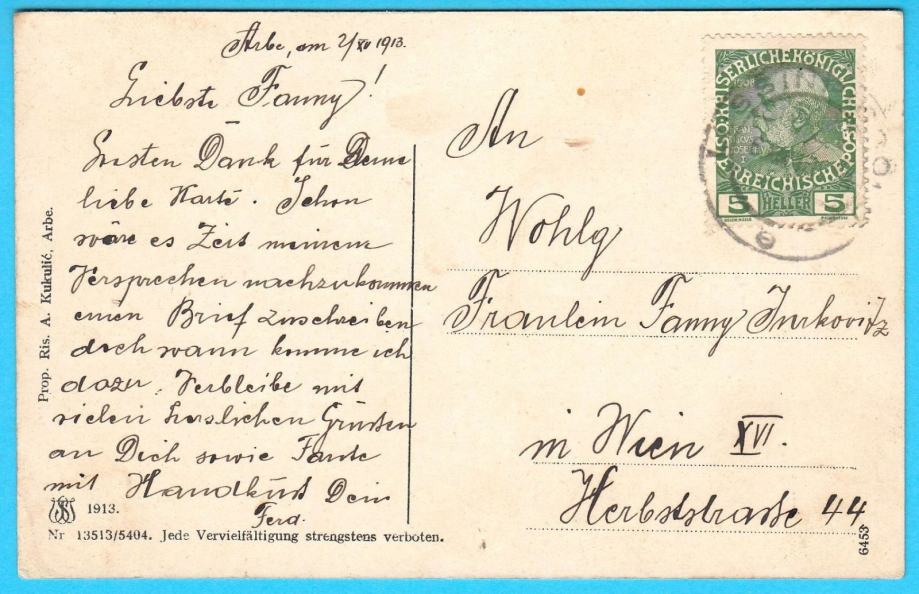 Arbe, am 2/XII 1913.
Liebste Fanny!
Ersten Dank für Deine
liebe Karte. Schon
wäre es Zeit meinem
Versprechen nachzukommen
einen Brief zuschreiben
doch wann komme ich
dazu. Verbleibe mit
vielen herzlichen Grüssen
an Dich sowie Tante
mit Handkuss Dein
Ferd.
1913.
Nr 13513/5404. Jede Vervielfältigung strengstens verboten.
Prop. Ris. A. Kukulić, Arbe.
KAISERLICHEKÖNIGLICHE
ÖSTERREICHISCHEPOST
5 HELLER 5
An
Wohlg
Fräulein Fanny Jurkovitz
in Wien XVI.
Herbststrasse 44
6453